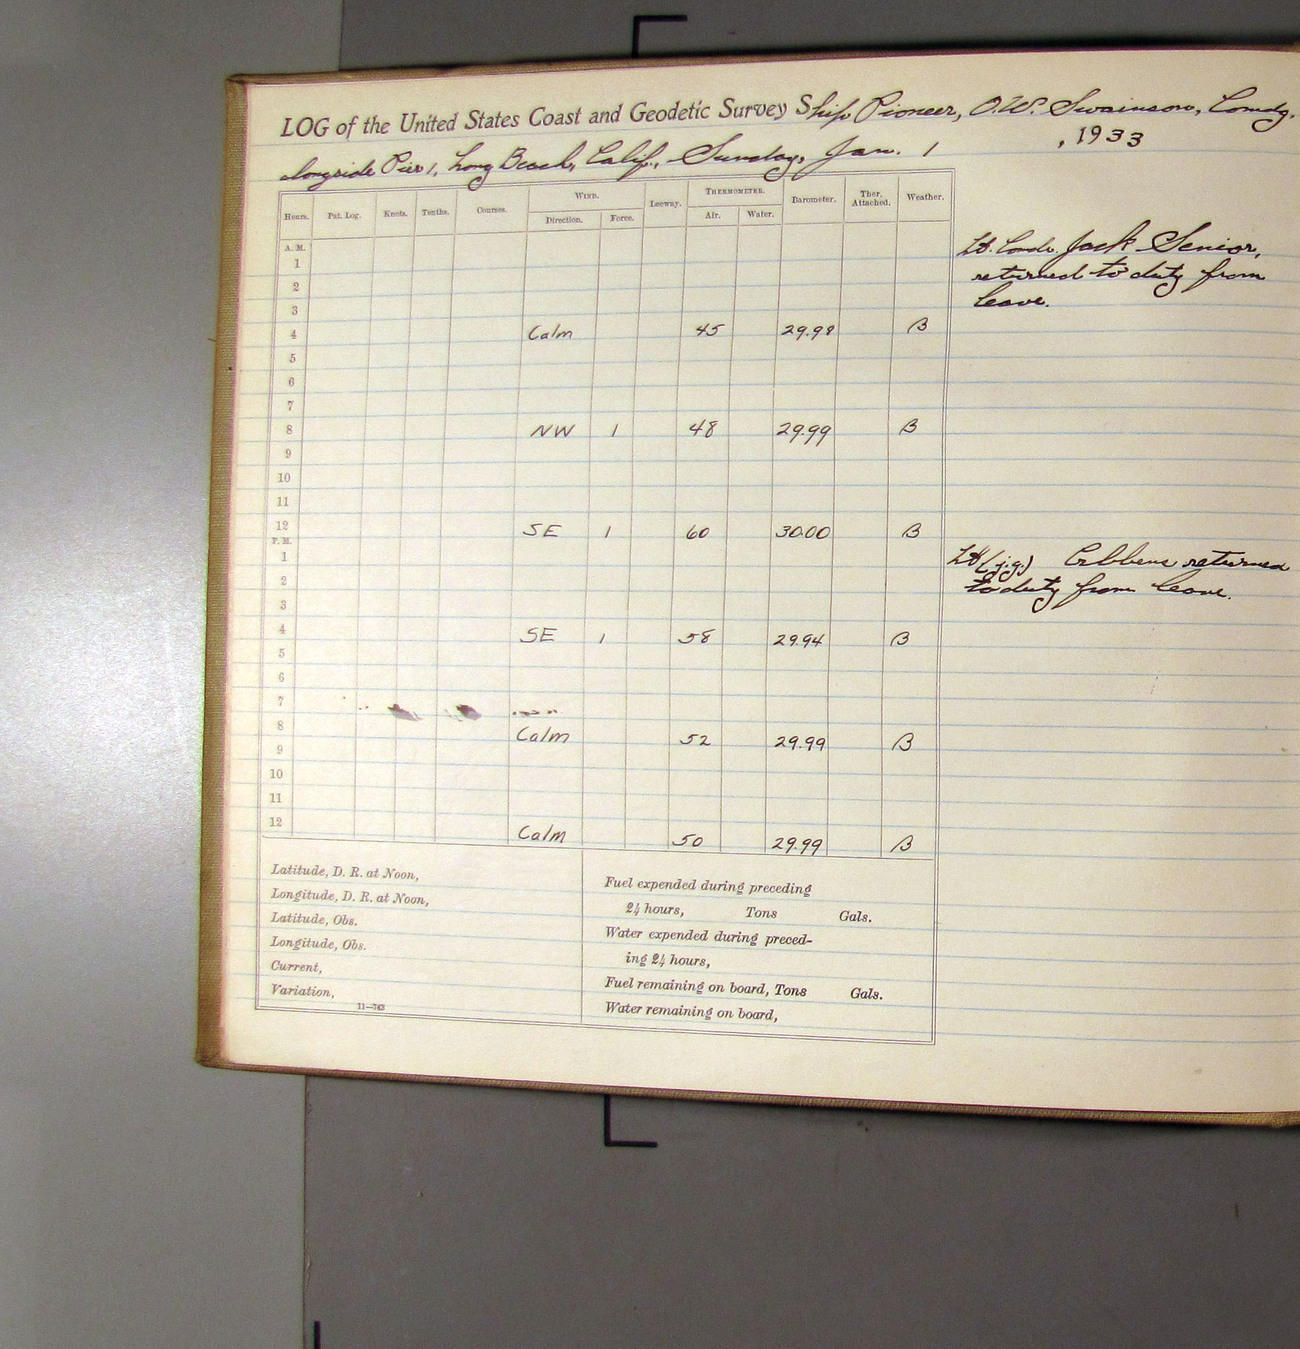 LOG of the United States Coast and Geodetic Survey Ship Pioneer, O.W. Swainson, Comdg.
alongside Pier 1, Long Beach, Calif., Sunday, Jan. 1, 1933
Hours. Pat. Log. Knots. Tenths. Courses. WIND. Direction. Force. Leeway. THERMOMETER. Air. Water. Barometer. Ther. Attached. Weather.
A. M.
1
Lt. Comdr. Jack Senior,
2
returned to duty from
3
leave.
4 Calm 45 29.98 B
5
6
7
8 NW 1 48 29.99 B
9
10
11
12 SE 1 60 30.00 B
P. M.
1
Lt (j.g.) returned
2
to duty from leave.
3
4 SE 1 58 29.94 B
5
6
7
8 Calm 52 29.99 B
9
10
11
12 Calm 50 29.99 B
Latitude, D. R. at Noon,
Longitude, D. R. at Noon,
Latitude, Obs.
Longitude, Obs.
Current,
Variation,
11—763
Fuel expended during preceding
24 hours, Tons Gals.
Water expended during preced-
ing 24 hours,
Fuel remaining on board, Tons Gals.
Water remaining on board,